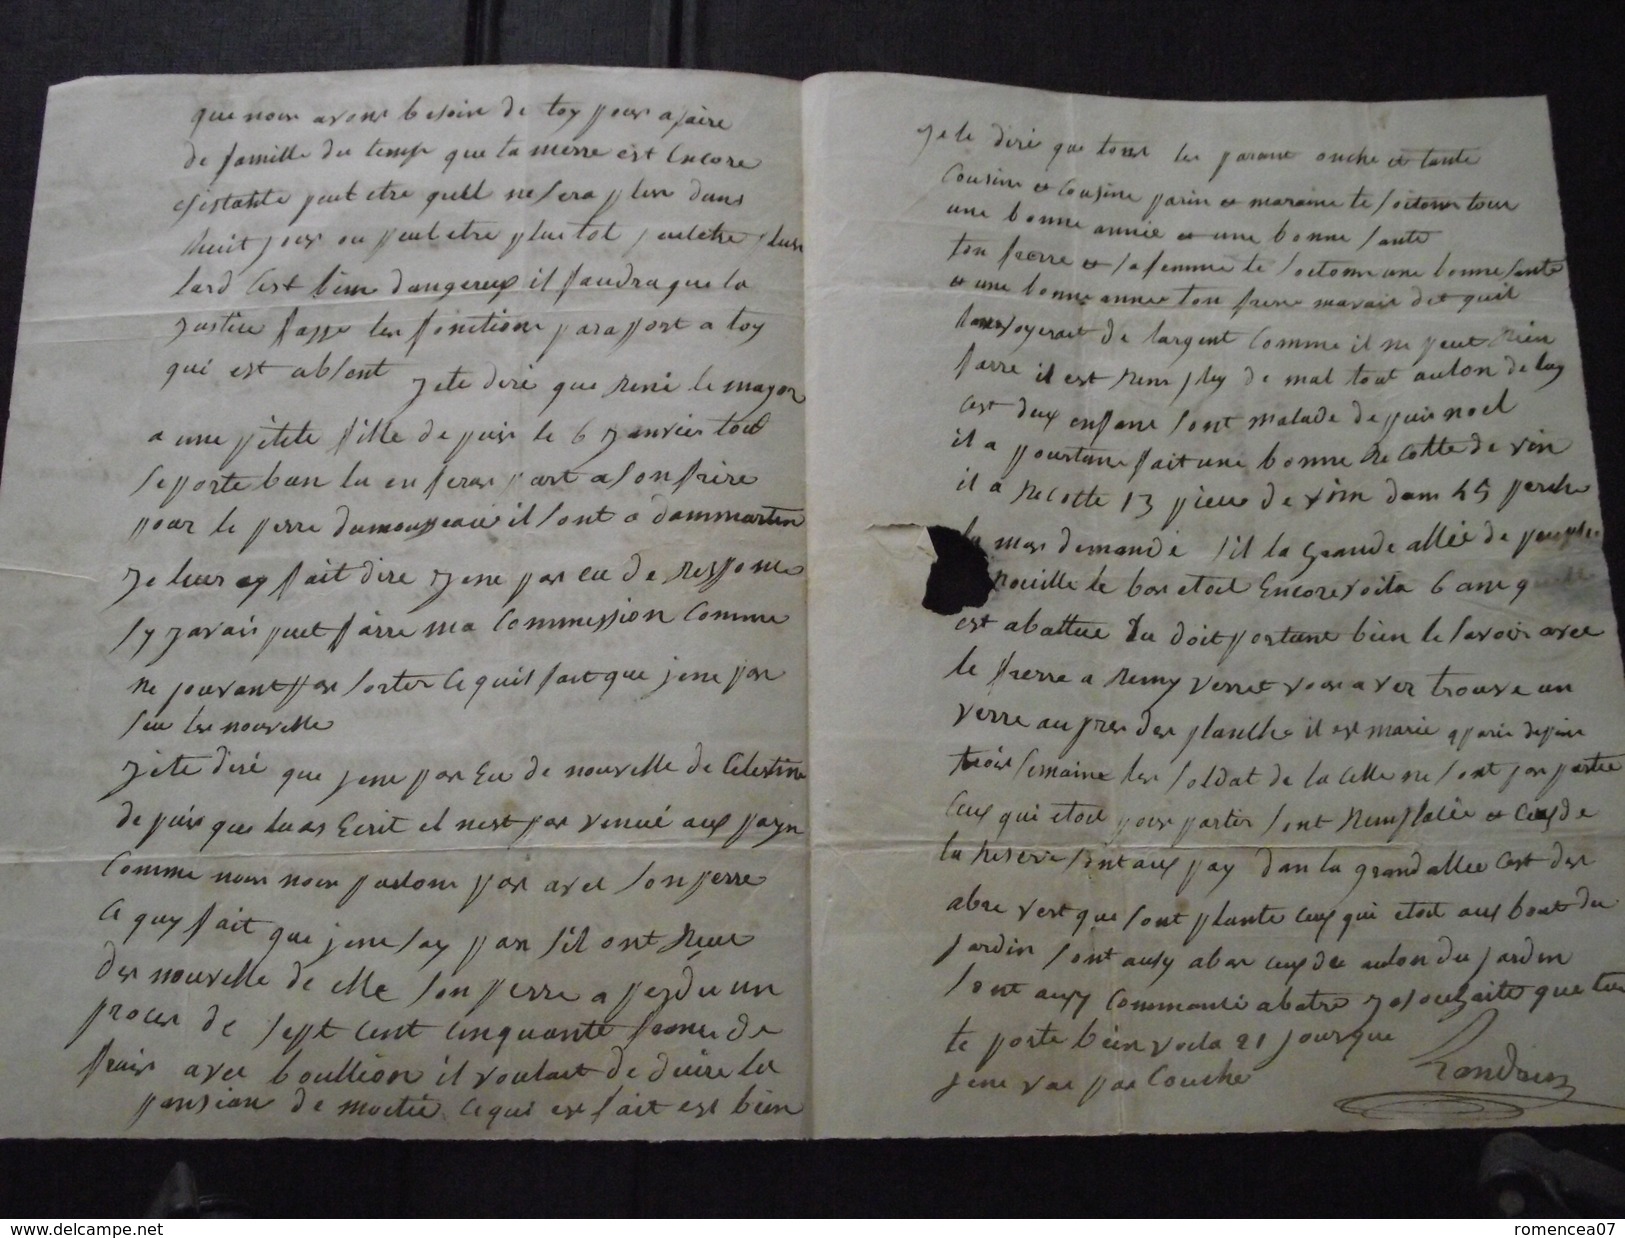 que nous avons besoin de toy pour afaire
de famille du temps que ta merre est Encore
Esistante peut etre quell ne sera plus dans
huit jour ou peut etre plus tot peutetre plus
tard Cest bien dangereux il faudra que la
justice fasse les fonctions parapost a toy
qui est absent je te diré que René le mayor
a une pétite fille depuis le 6 janvier tout
se porte bien tu en feras part a son frère
pour le perre dumousseau il sont a dammartin
je leur ay fait dire je ne pas eu de Responce
sy javais puet fairre ma Commission Comme
ne pouvant pas sorter Ce quis fait que je ne pas
seu les nouvelle
je te diré que je ne pas Eu de nouvelle de Celestine
depuis que tu as Ecrit el nest pas venue aux payn
Comme nous nous parlons pas avec son perre
Ce quy fait que je ne say pas s'il ont Reue
des nouvelle de elle son perre a perdu un
proces de sept cent cinquante franc de
frais avec boullion il voulait deduire la
pansion de moetié Ce qui est fait est bien
Je te diré que tous les parant onche et tante
Cousin et Cousine parin et maraine te soitent tous
une bonne année et une bonne sante
ton frerre et sa femme te soitent une bonne sante
et une bonne annee ton frere mavait dit quil
de largent Comme il ne peut Rien
farre il est Remply de mal tout aulon de luy
ces deux enfans sont malade depuis noel
il a pourtant fait une bonne Recolte de vin
il a Recolte 13 piece de vin dans 45 perche
tu mas demandé s'il la grande allée de
Rouille le bas etoit Encore voila 6 ans
est abattue tu doit portant bien le savoir avec
le frerre a Remy verret vous aver trouve un
verre au pres des planche il est marié aparis depuis
trois semaine les soldat de la Celle ne sont pas partie
Ceux qui etoit pour partir sont Remplacée et Ceux de
la Reserve sont aux pay dan la grand allee Cest des
abre vert que sont plante Ceux qui etoit aux bout du
jardin sont ausy abar Ceux de aulon du jardin
sont ausy Commancé abatre je souhaite que tu
te porte bien voila 21 jours que
je ne vas pas Couche
Landrin
www.delcampe.net
romencea07